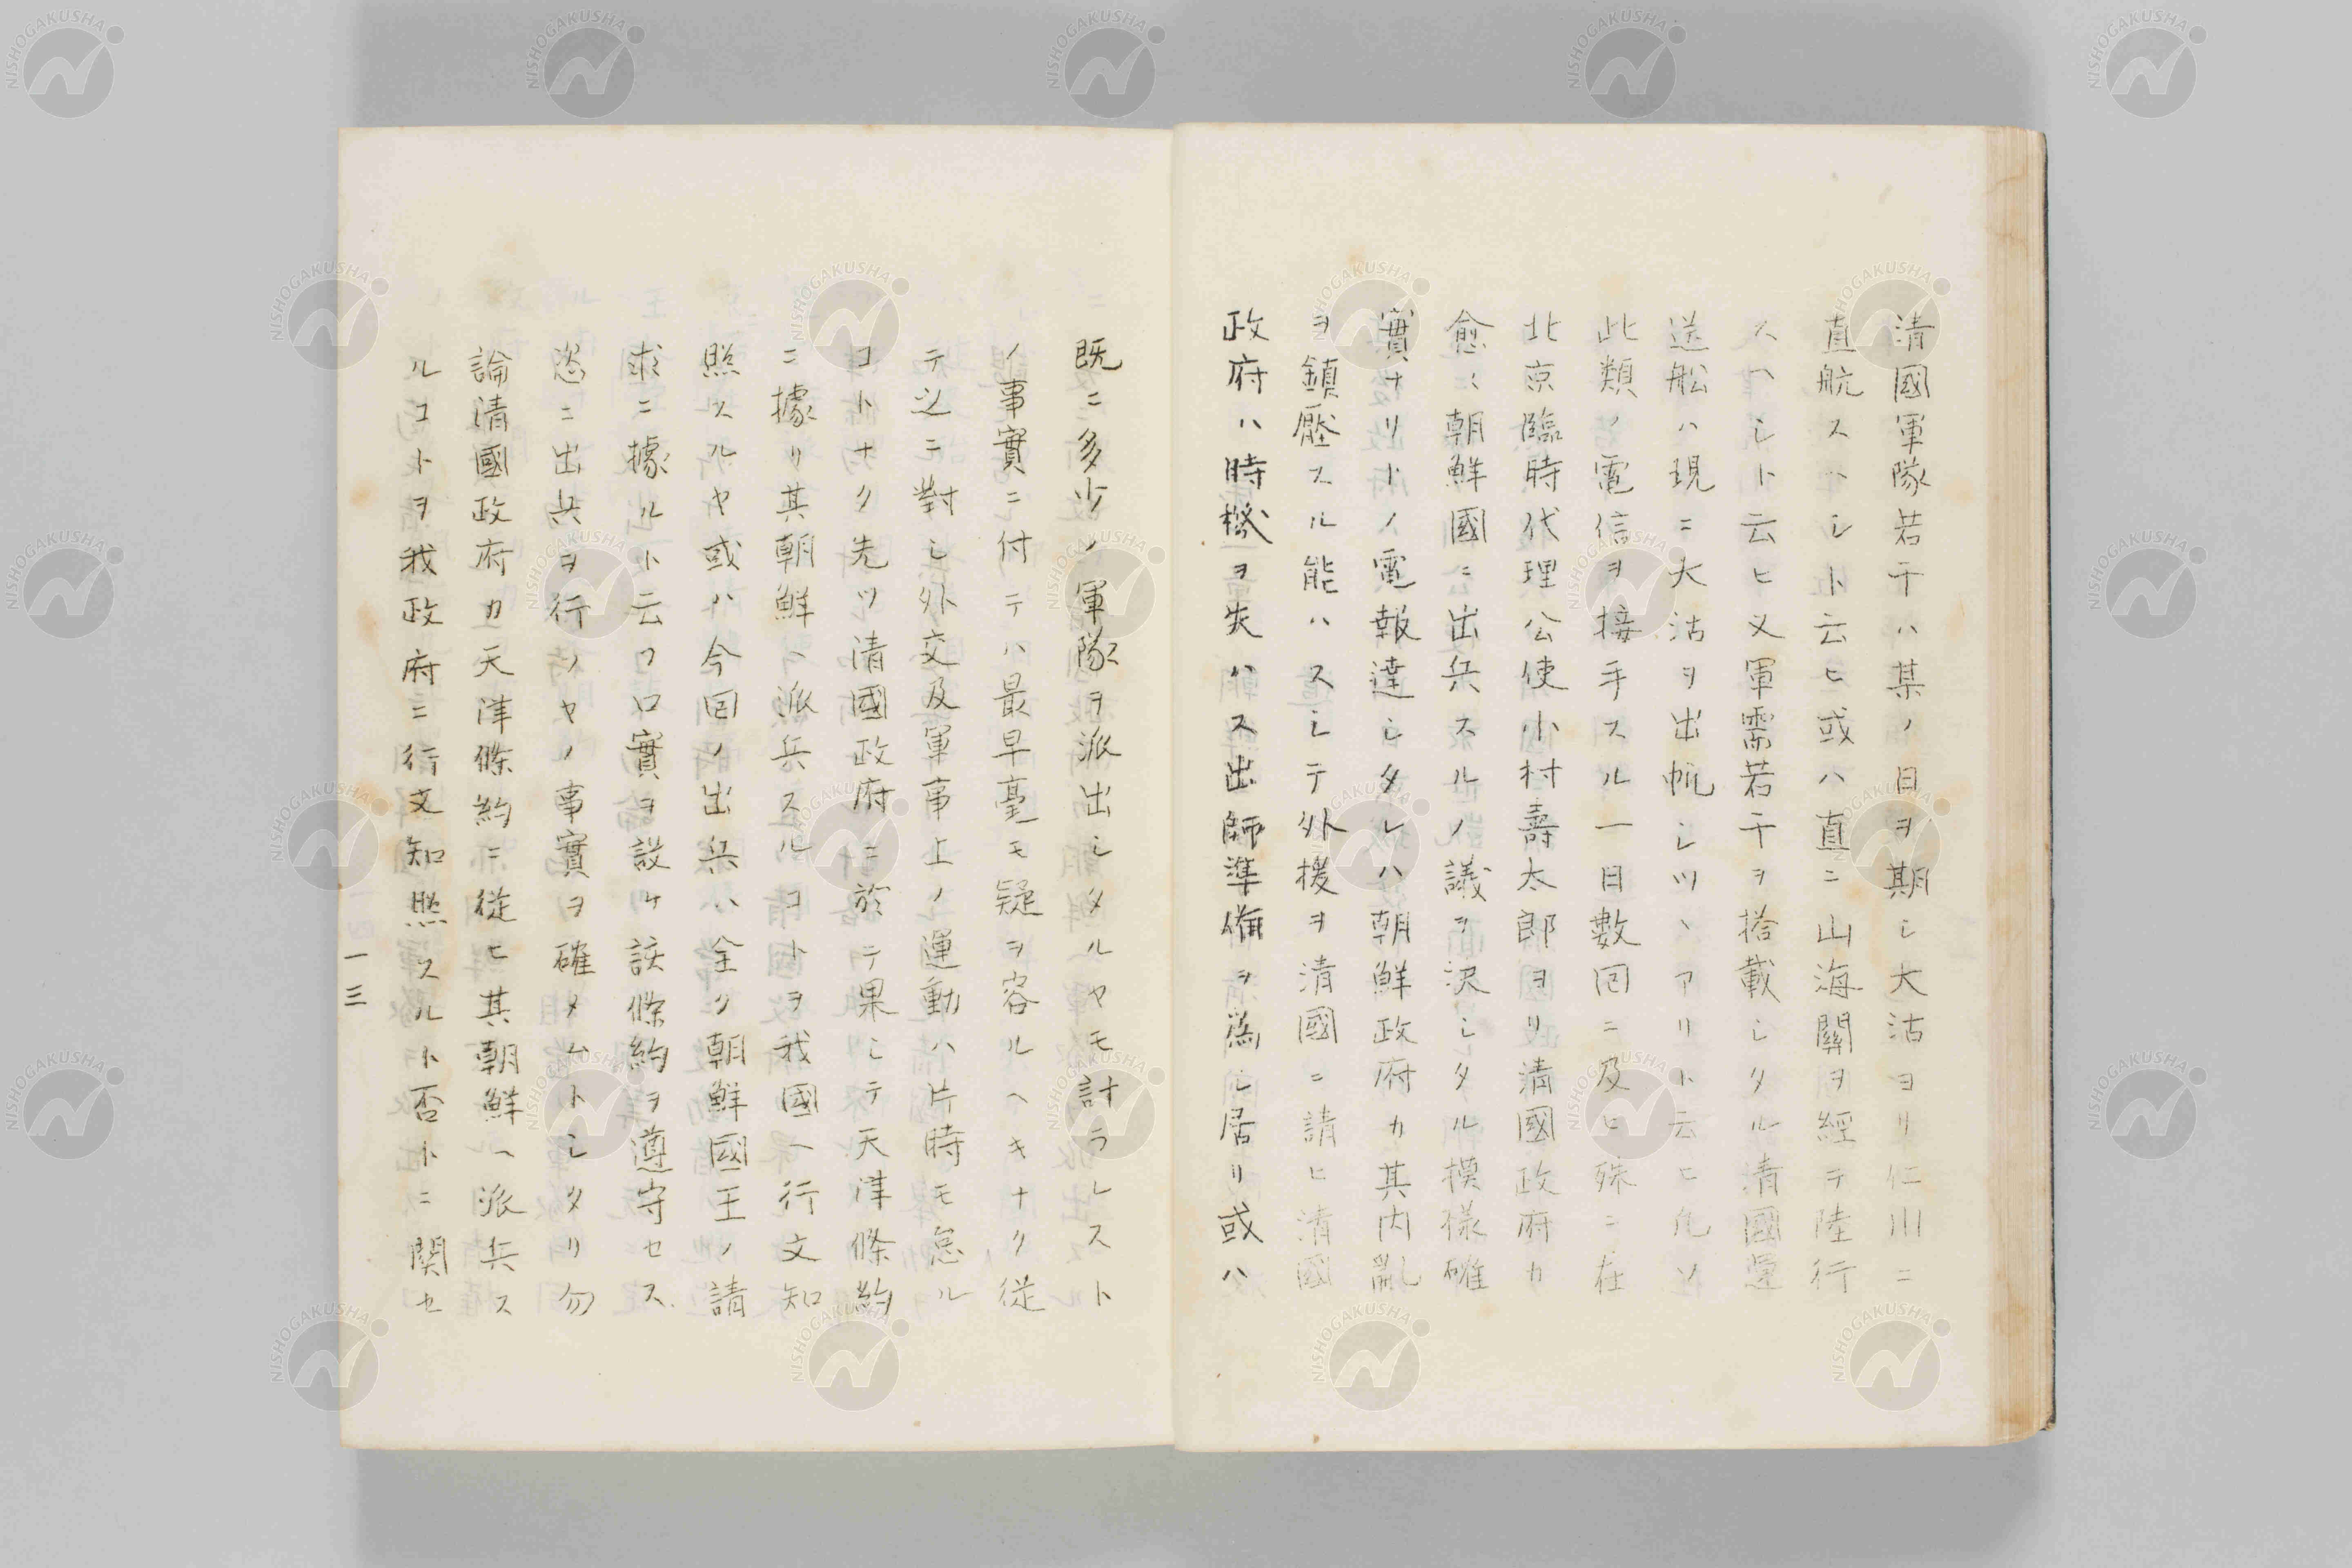 清國軍隊若干ハ某ノ日ヲ期シ大沽ヨリ仁川ニ
直航スヘシト云ヒ或ハ直ニ山海關ヲ經テ陸行
スヘシト云ヒ又軍需若干ヲ搭載シタル清國運
送船ハ現ニ大沽ヲ出帆シツヽアリト云ヒ凡ソ
此類ノ電信ヲ接手スル一日數回ニ及ヒ殊ニ在
北京臨時代理公使小村壽太郎ヨリ清國政府カ
愈〻朝鮮國ニ出兵スルノ議ヲ決シタル模樣確
實ナリトノ電報達シタレハ朝鮮政府カ其内亂
ヲ鎮壓スル能ハスシテ外援ヲ清國ニ請ヒ清國
政府ハ時機ヲ失ハス出師準備ヲ爲シ居リ或ハ
既ニ多少ノ軍隊ヲ派出シタルヤモ計ラレスト
ノ事實ニ付テハ最早毫モ疑ヲ容ルヘキナク從
テ之ニ對シ外交及軍事上ノ運動ハ片時モ怠ル
コトナク先ツ清國政府ニ於テ果シテ天津條約
ニ據リ其朝鮮ヘ派兵スルコトヲ我國ヘ行文知
照スルヤ或ハ今回ノ出兵ハ全ク朝鮮國王ノ請
求ニ據ルト云フ口實ヲ設ケ該條約ヲ遵守セス
恣ニ出兵ヲ行ノヤノ事實ヲ確メムトシタリ勿
論清國政府カ天津條約ニ從ヒ其朝鮮ヘ派兵ス
ルコトヲ我政府ニ行文知照スルト否トニ関セ
一三
NISHOGAKUSHA